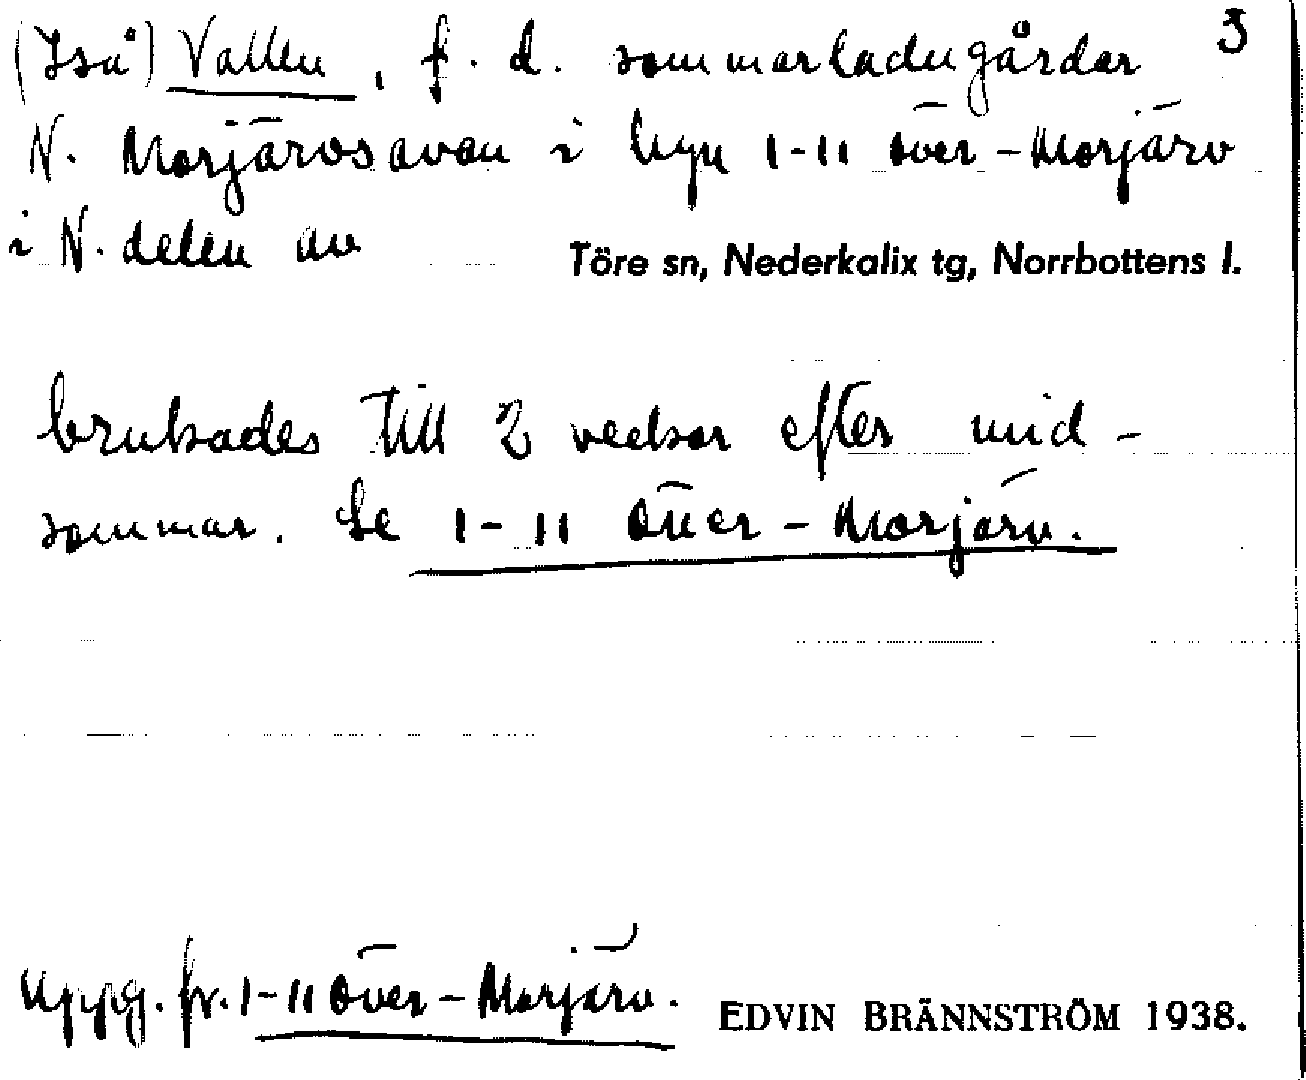 (Iså) Vallen, f. d. sommarladugårdar 3
N. Morjärvsavan i byn 1-11 Över-Morjärv
i N. delen av
Töre sn, Nederkalix tg, Norrbottens l.
brukades till 2 veckor efter mid-
sommar. Se 1-11 Över-Morjärv.
Uppg. fr. 1-11 Över-Morjärv.
EDVIN BRÄNNSTRÖM 1938.